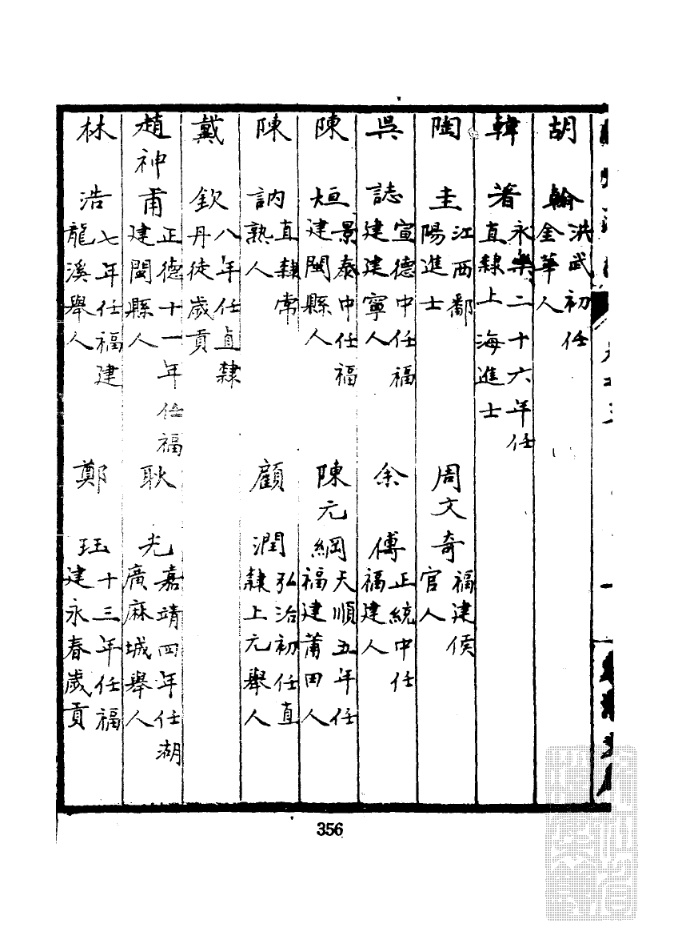 胡翰 洪武初任金華人
韓著 永樂二十六年任直隸上海進士
陶圭 江西鄱陽進士
周文奇 福建侯官人
吳誌 宣德中任福建建寧人
余傅 正統中任福建人
陳垣 景泰中任福建閩縣人
陳元綱 天順五年任福建莆田人
陳訥 直隸常熟人
顧潤 弘治初任直隸上元舉人
戴欽 八年任直隸丹徒歲貢
趙神甫 正德十一年任福建閩縣人
耿光 嘉靖四年任湖廣麻城舉人
林浩 七年任福建龍溪舉人
鄭珏 十三年任福建永春歲貢
356